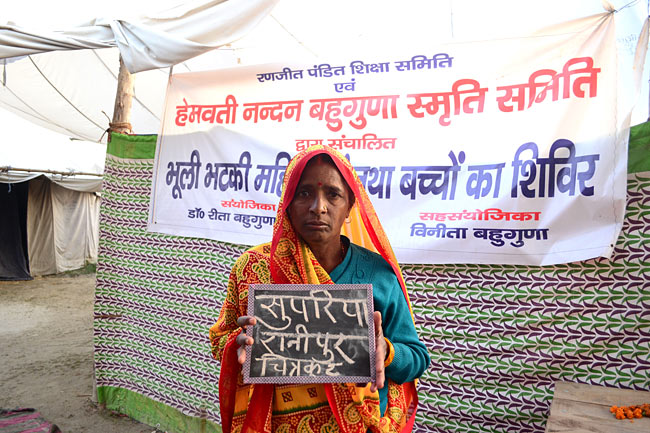 रणजीत पंडित शिक्षा समिति
एवं
हेमवती नन्दन बहुगुणा स्मृति समिति
द्वारा संचालित
भूली भटकी तथा बच्चों का शिविर
संयोजिका
डॉ० रीता बहुगुणा
सहसंयोजिका
विनीता बहुगुणा
सुपरिया
रानीपुर
चित्रकुट